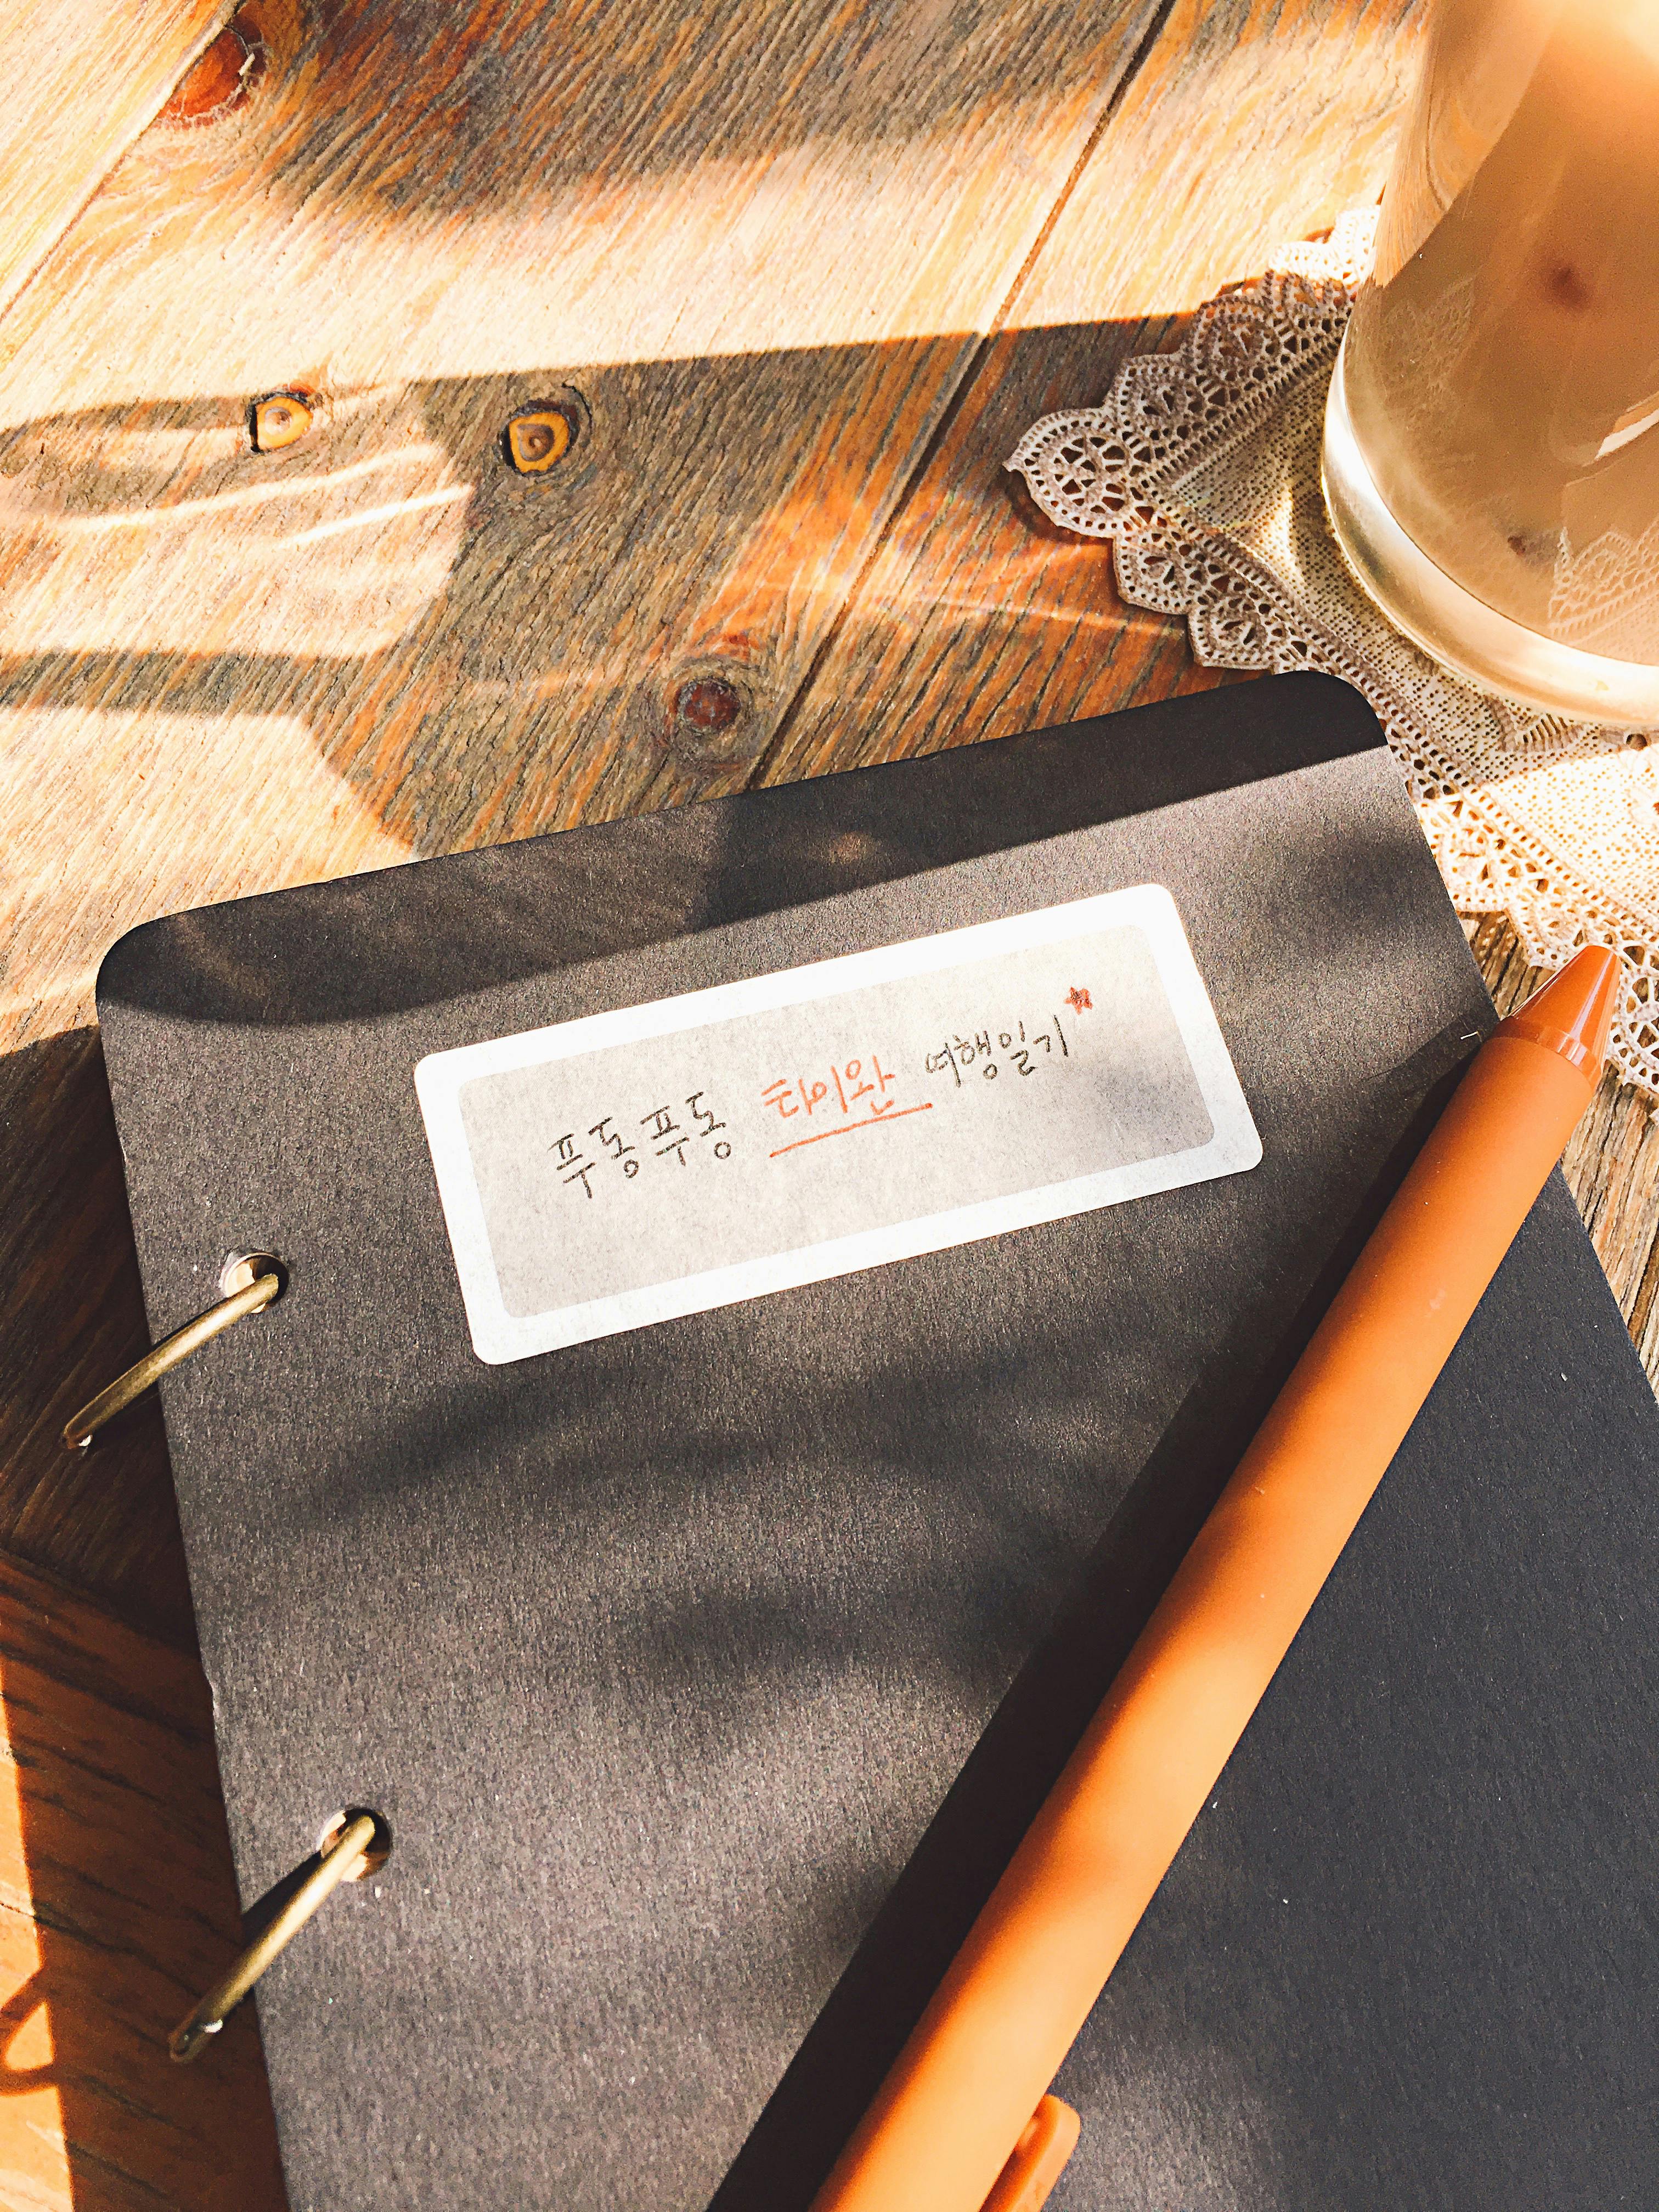 푸동푸동 타이완 여행일기